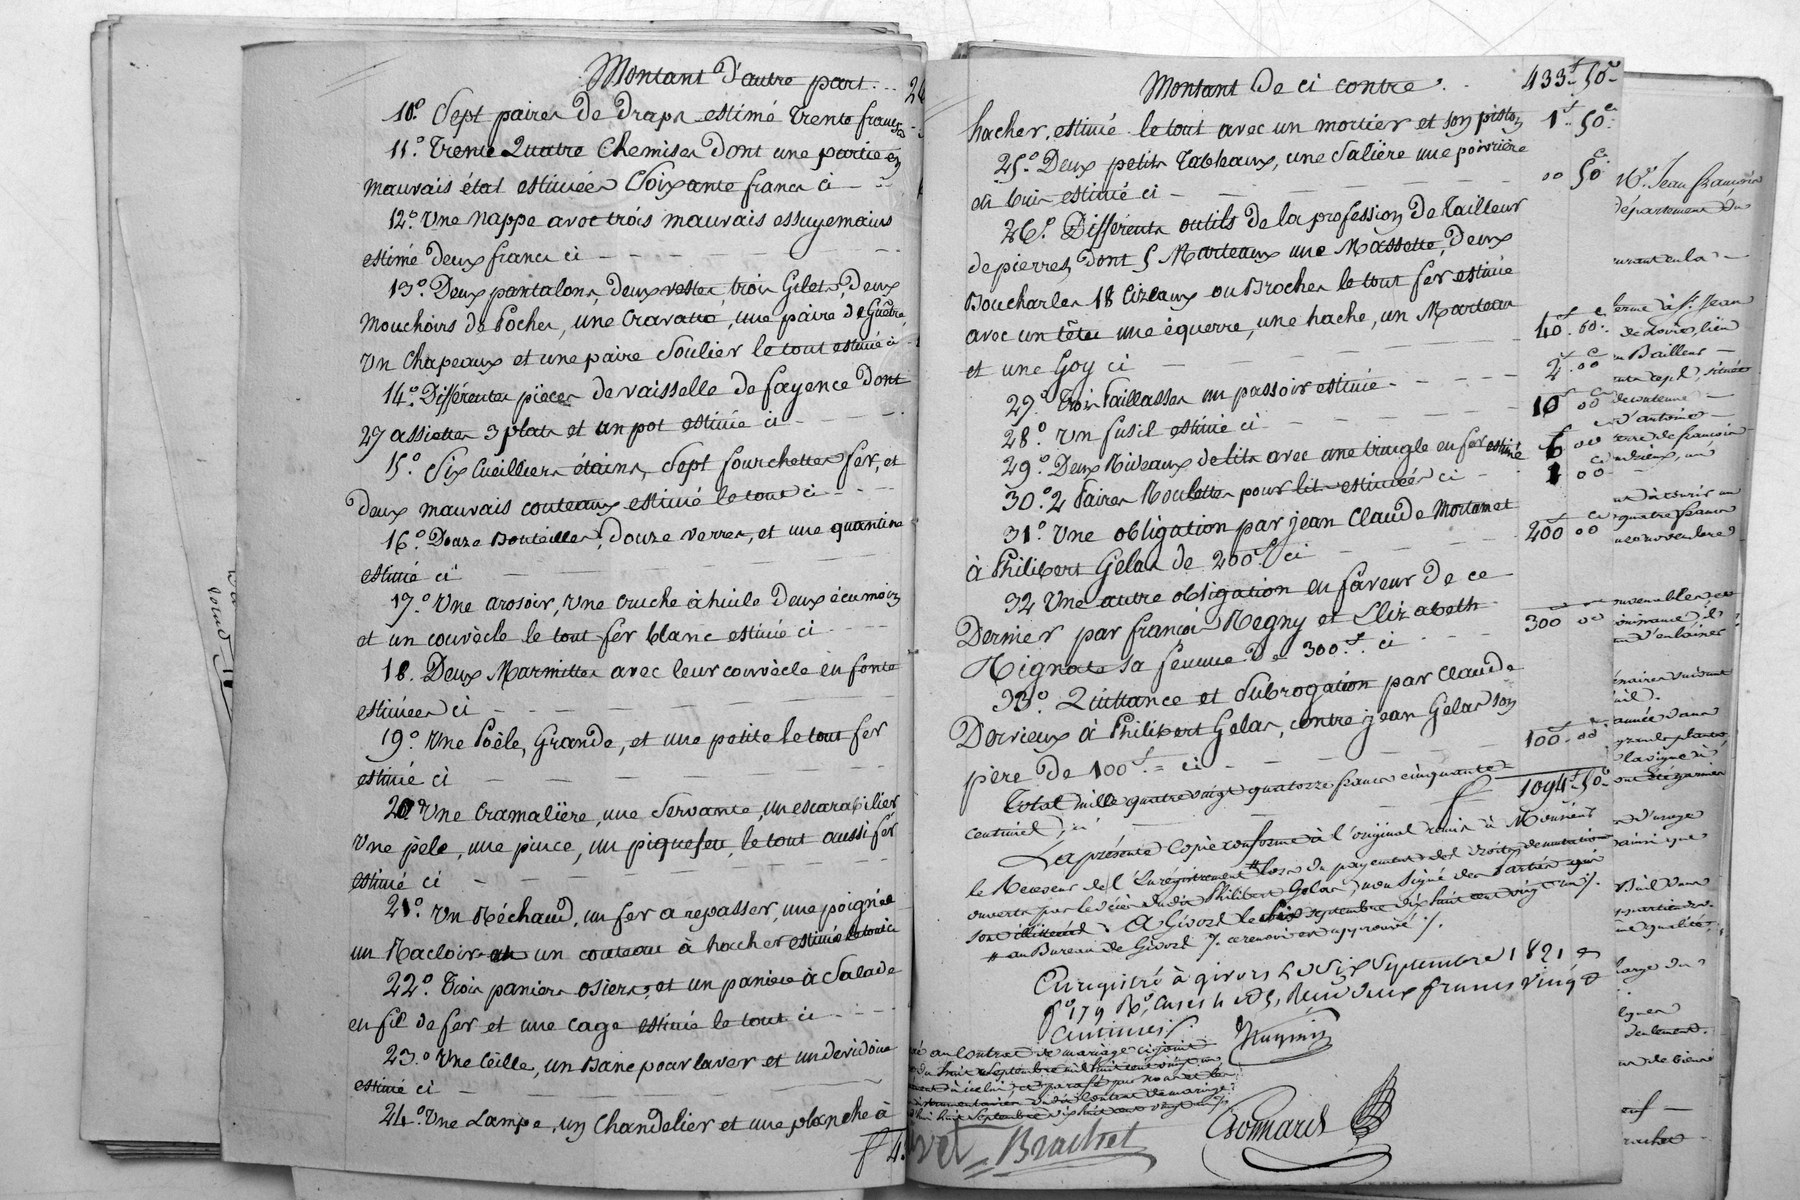 Montant d'autre part. .. 2
10.° Sept paires de Draps estimé trente francs
11.° Trente Quatre Chemises dont une partie en
mauvais état estimées Soixante francs ci
12.° Une nappe avec trois mauvais essuyemains
estimé deux francs ci
13.° Deux pantalons, deux vestes, trois Gilets, deux
mouchoirs de Poches, une Cravatte, une paire de Guêtre,
un Chapeaux et une paire Soulier le tout estimé ci
14.° Différentes pièces de vaisselle de fayence dont
27 assiettes 3 plats et un pot estimé ci
15.° Six Cueilliers étains, Sept fourchettes fer, et
deux mauvais couteaux estimé le tout ci
16.° Douze Bouteilles, douze verres, et une quantine
estimé ci
17.° Une arosoir, une cruche à huile deux écumoirs
et un couvècle le tout fer blanc estimé ci
18. Deux Marmittes avec leur couvècle en fonte
estimées ci
19.° Une Poêle, Grande, et une petite le tout fer
estimé ci
20 Une Cramalière, une Servante, un escarabilier
une pèle, une pince, un piquefeu, le tout aussi fer
estimé ci
21.° Un Réchaud, un fer a repasser, une poignée
un Racloir un couteau à hacher estimé le tout ci
22.° Trois paniers osiers, et un panier à Salade
en fil de fer et une cage estimé le tout ci
23.° Une Seille, un Banc pour laver et un devidoire
estimé ci
24.° Une Lampe, un Chandelier et une planche à
f 4
Montant de ci contre. 433.f 50.c
hacher, estimé le tout avec un mortier et son piston 1.f 50.c
25.° Deux petits Tableaux, une Salière une poivrière
en buis estimé ci 00 50.c
26.° Différents outils de la profession de Tailleur
de pierres, dont 5 Marteaux une Massette, deux
Boucharles 18 Cizeaux ou Broches le tout fer estimé
avec un têtu une équerre, une hache, un Marteau
et une Goy ci 40.f 60.c
27.° Trois Paillasses un passoir estimé 2.f 00.c
28.° Un fusil estimé ci 10.f 00.c
29.° Deux Rideaux de lits avec une tringle en fer estimé 6 00
30.° 2 Paires Roulettes pour lit estimées ci 1 00
31.° Une obligation par jean Claude Mortamet
à Philibert Gelas de 200.f ci 200.f 00.c
32 Une autre obligation en faveur de ce
Dernier par françois Regny et Elizabeth
Mignote sa femme de 300.f ci 300 00
33.° Quittance et Subrogation par Claude
Dervieux à Philibert Gelas, contre jean Gelas son
père de 100.f = ci 100.f 00.c
f 1094.f 50.c
Total mille quatre vingt quatorze francs cinquante
centimes, ci
La présente Copie conforme à l'original remis à Monsieur
le Receveur de l'Enregistrement # lors du payement des droits de mutation
ouverts par le décès dudit Philibert Gelas, non signé des Parties qui
sont illitérées. A Givors le six septembre dix huit cent vingt un ./.
# au Bureau de Givors ./. ce renvoi est approuvé ./.
Enregistré à givors le Six Septembre 1821
f.° 179 R.° Cases 4 et 5, Reçu deux francs vingt
centimes ./.
au Contrat de mariage cijoint
du huit Septembre mil huit cent vingt un
hui huit Septembre dix huit cent vingt un ./.
Brachet
Bonnard
M.r Jean françois
département du